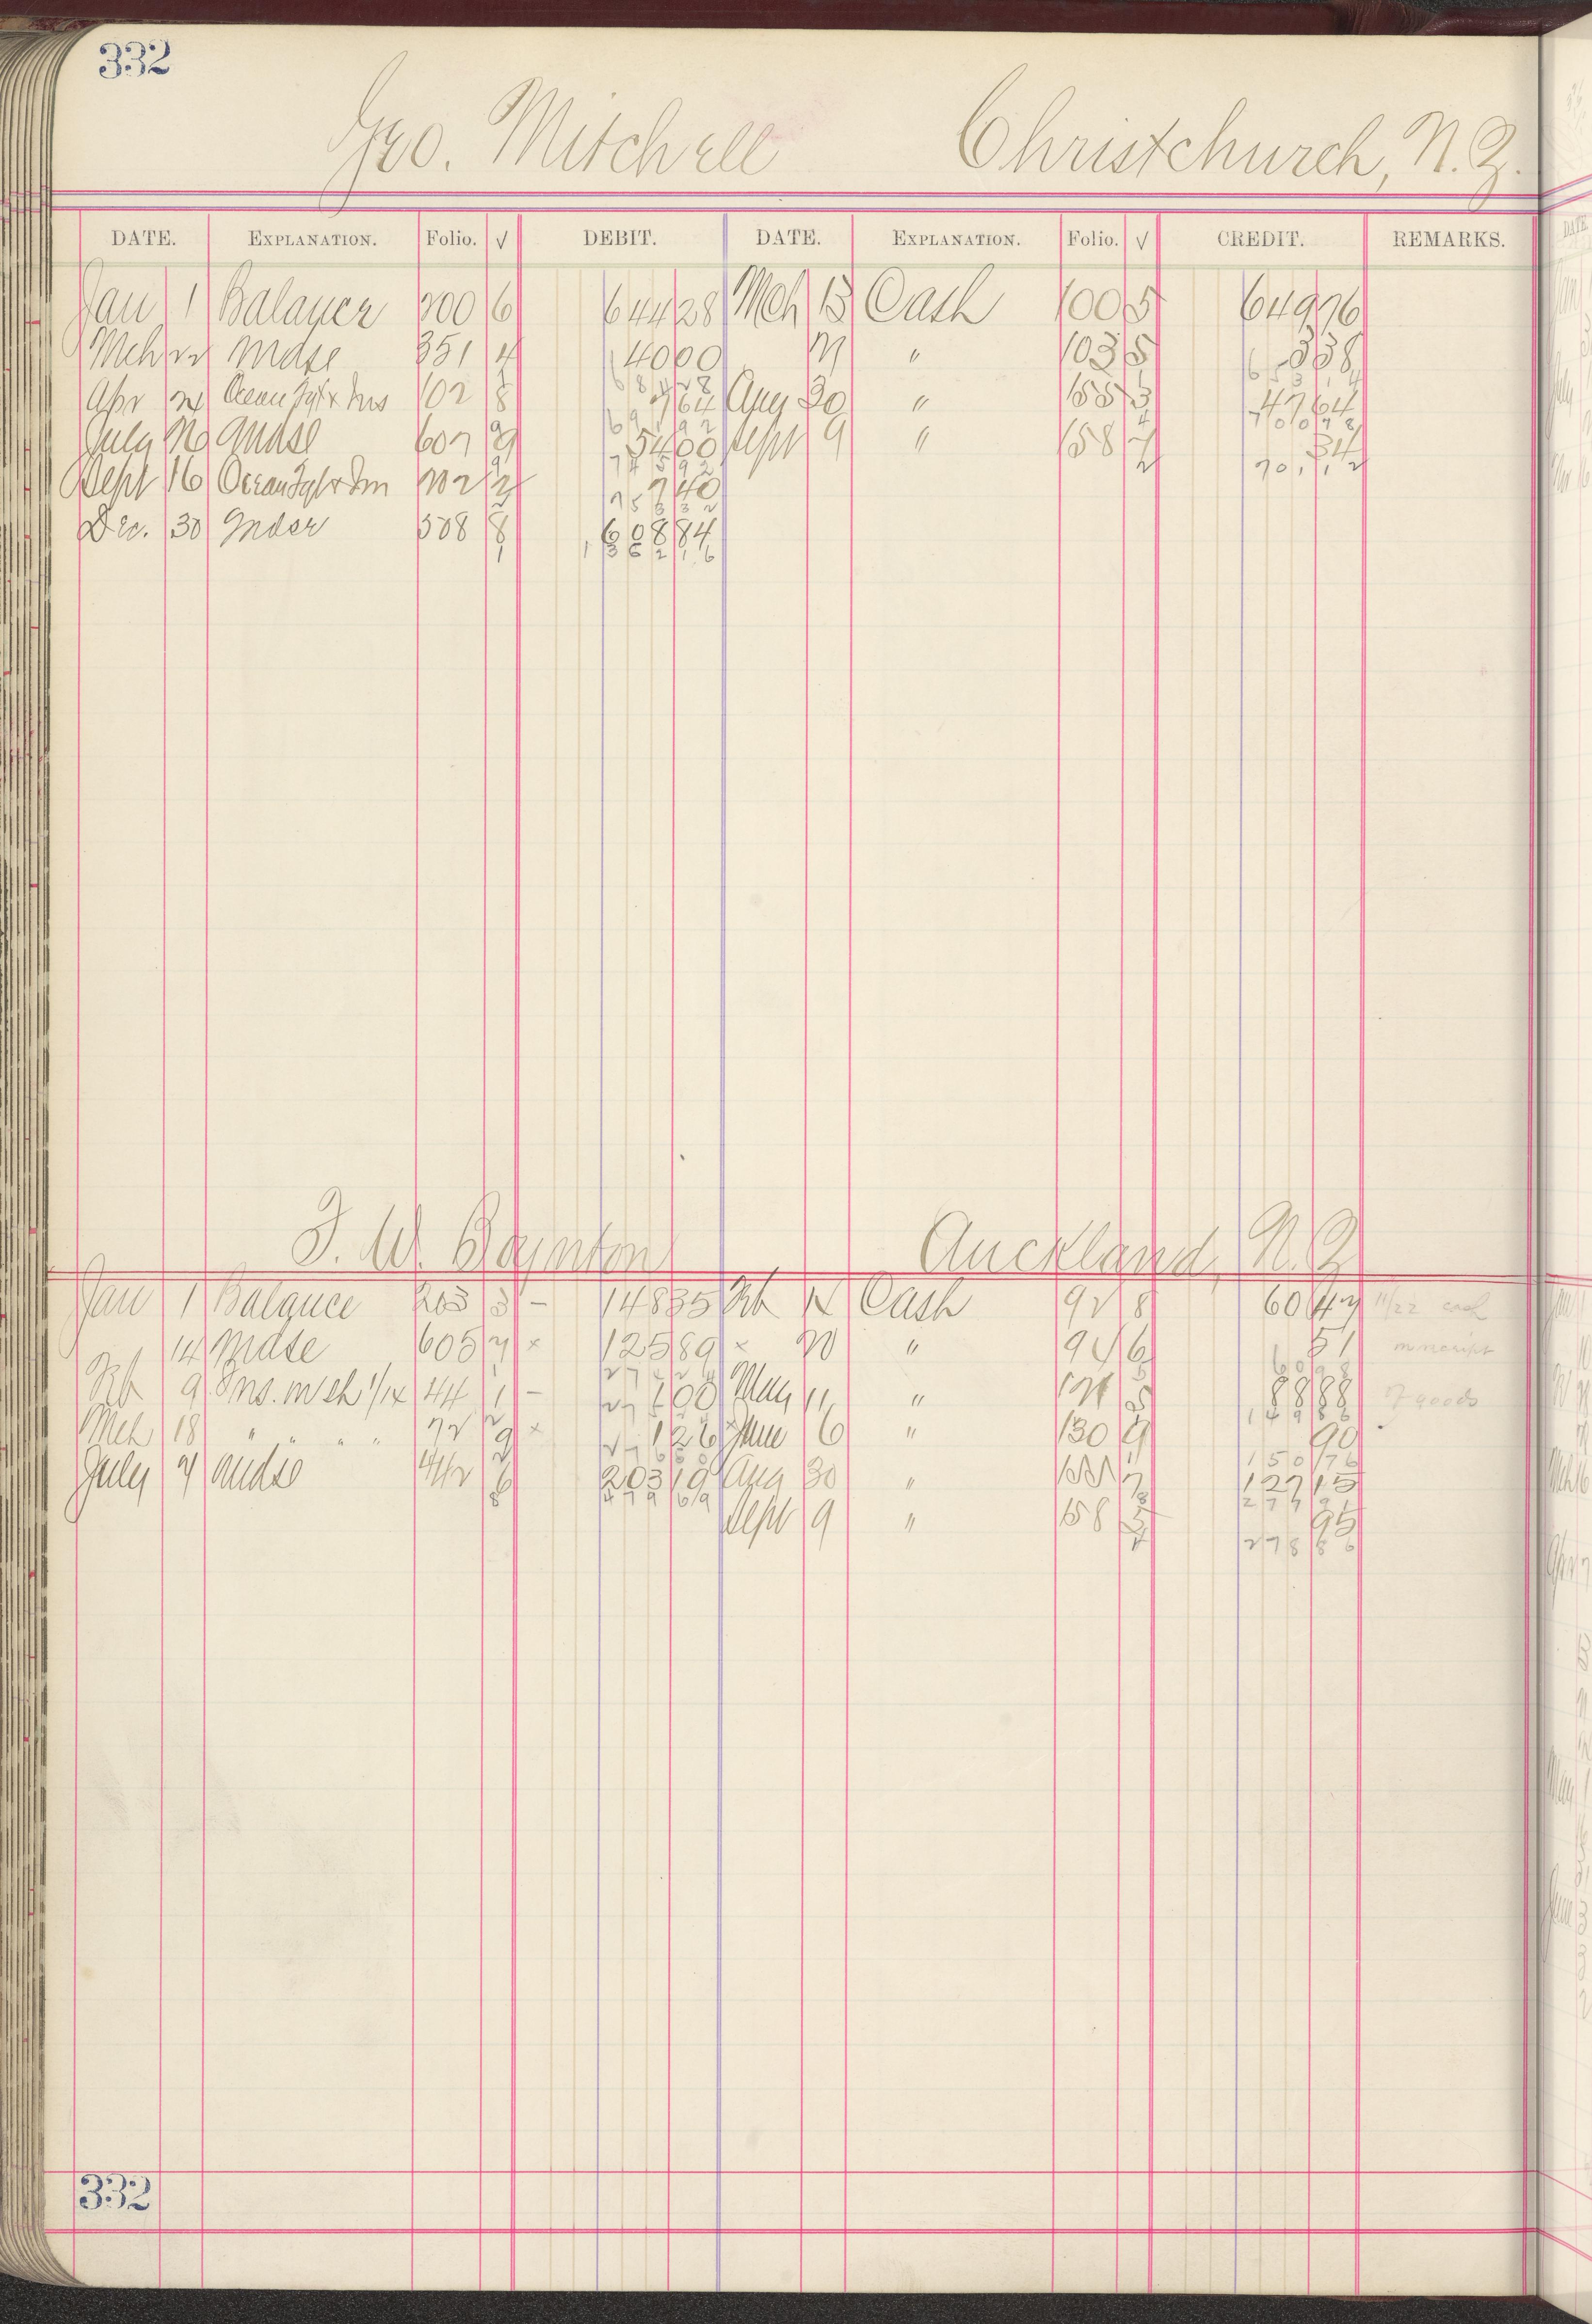 332
Geo. Mitchell Christchurch, N.Z.
DATE. EXPLANATION. Folio. √ DEBIT. DATE. EXPLANATION. Folio. √ CREDIT. REMARKS.
Jan 1 Balance 200 6 644 28 Mch 13 Cash 100 5 649 76
Mch 22 Mdse 351 4 40 00 " 103 5 5 38
Apr Ocean Fgt & Ins 102 8 7 64 Aug 30 " 155 47 64
July Mdse 607 9 54 00 Sept 9 " 158 34
Sept 16 Ocean Fgt & Ins 202 2 7 40
Dec. 30 Mdse 508 8 608 84
1362 16
J. W. Boynton Auckland, N.Z.
Jan 1 Balance 203 3 - 148 35 Feb 12 Cash 92 8 60 47 11/22 cash
14 Mdse 605 7 × 125 89 × 20 " 94 6 51
Feb 9 Ins. mch 1/14 44 1 - 1 00 May 11 " 121 88 88 7 goods
Mch 18 " " " " 72 9 × 1 26 June 6 " 130 9 90
July 7 Mdse 203 19 Aug 30 " 155 127 15
479 69
Sept 9 " 158 95
278 86
332